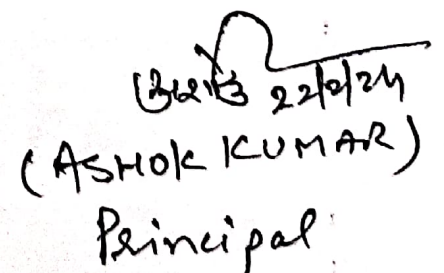 22/2/24
(ASHOK KUMAR)
Principal